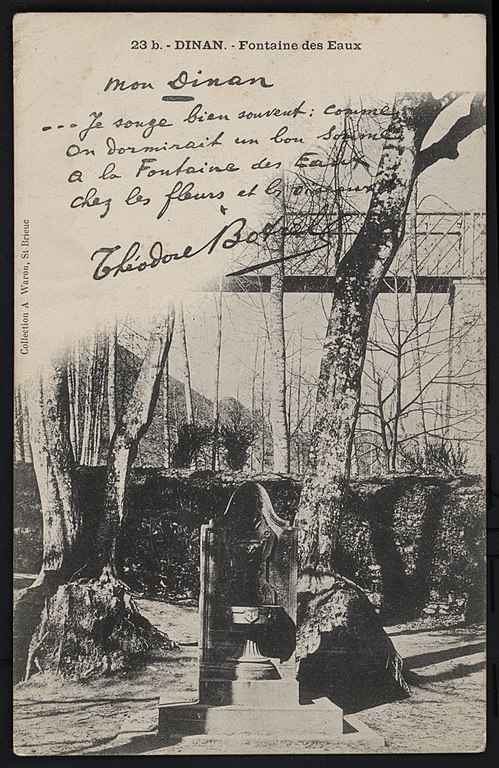 23 b. - DINAN. - Fontaine des Eaux
mon Dinan
--- Je songe bien souvent : comme
On dormirait un bon somme
A la Fontaine des Eaux
chez les fleurs et les oiseaux
Théodore Botrel
Collection A Waron, St Brieuc